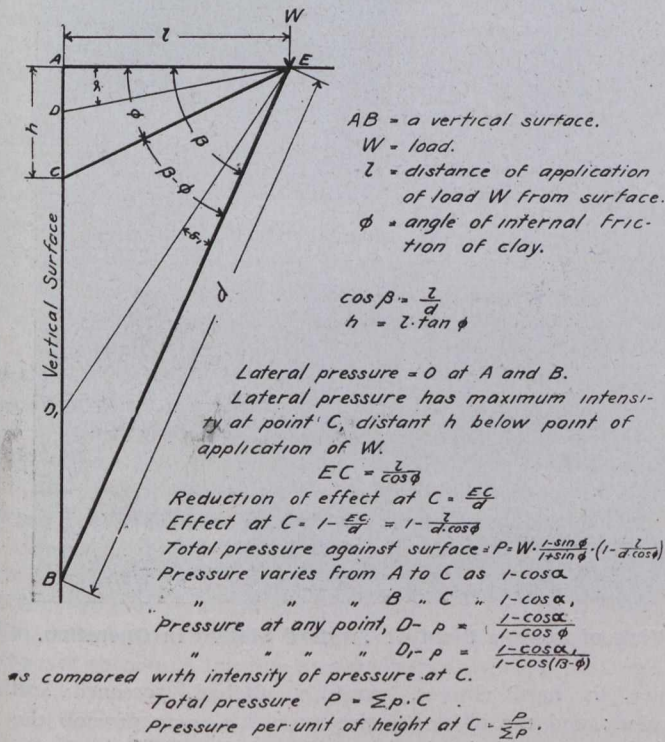 W
l
A
E
α
D
φ
β
h
β-φ
C
α,
d
Vertical Surface
D,
B
AB = a vertical surface.
W = load.
l = distance of application
of load W from surface.
φ = angle of internal fric-
tion of clay.
cos β = l/d
h = l·tan φ
Lateral pressure = 0 at A and B.
Lateral pressure has maximum intensi-
ty at point C, distant h below point of
application of W.
EC = l/cosφ
Reduction of effect at C = EC/d
Effect at C = 1 - EC/d = 1 - l/d·cosφ
Total pressure against surface = P = W · 1-sinφ/1+sinφ · (1 - l/d cosφ)
Pressure varies from A to C as 1-cosα
„ „ „ B „ C „ 1-cosα,
Pressure at any point, D - p = 1-cosα/1-cos φ
„ „ „ „ D, - p = 1-cosα,/1-cos(β-φ)
as compared with intensity of pressure at C.
Total pressure P = Σp · C
Pressure per unit of height at C - P/Σp.